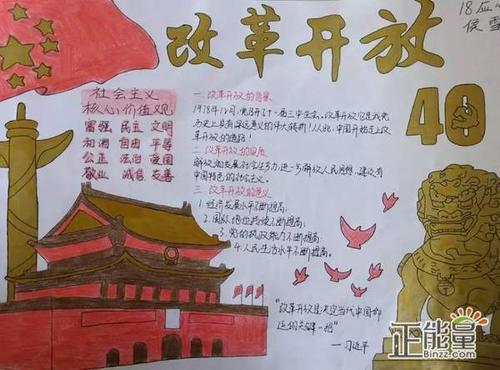 改革开放
40
18应
侯雪
社会主义
核心价值观
富强 民主 文明
和谐 自由 平等
公正 法治 爱国
敬业 诚信 友善
一. 改革开放的背景
1978年12月,党召开了十一届三中全会。改革开放是我党
历史上具有深远意义的伟大转折!从此,中国开始走上
改革开放的道路!
二. 改革开放的实质
解放和发展社会生产力,进一步解放人民思想,建设有
中国特色的社会主义。
三. 改革开放的意义
1. 经济发展水平不断提高
2. 国际地位
不断提高
3. 党的执政能力不断提高
4. 人民生活水平不断提高。
"改革开放是决定当代中国命
运的关键一招"
—习近平
正能量
Binzz.com